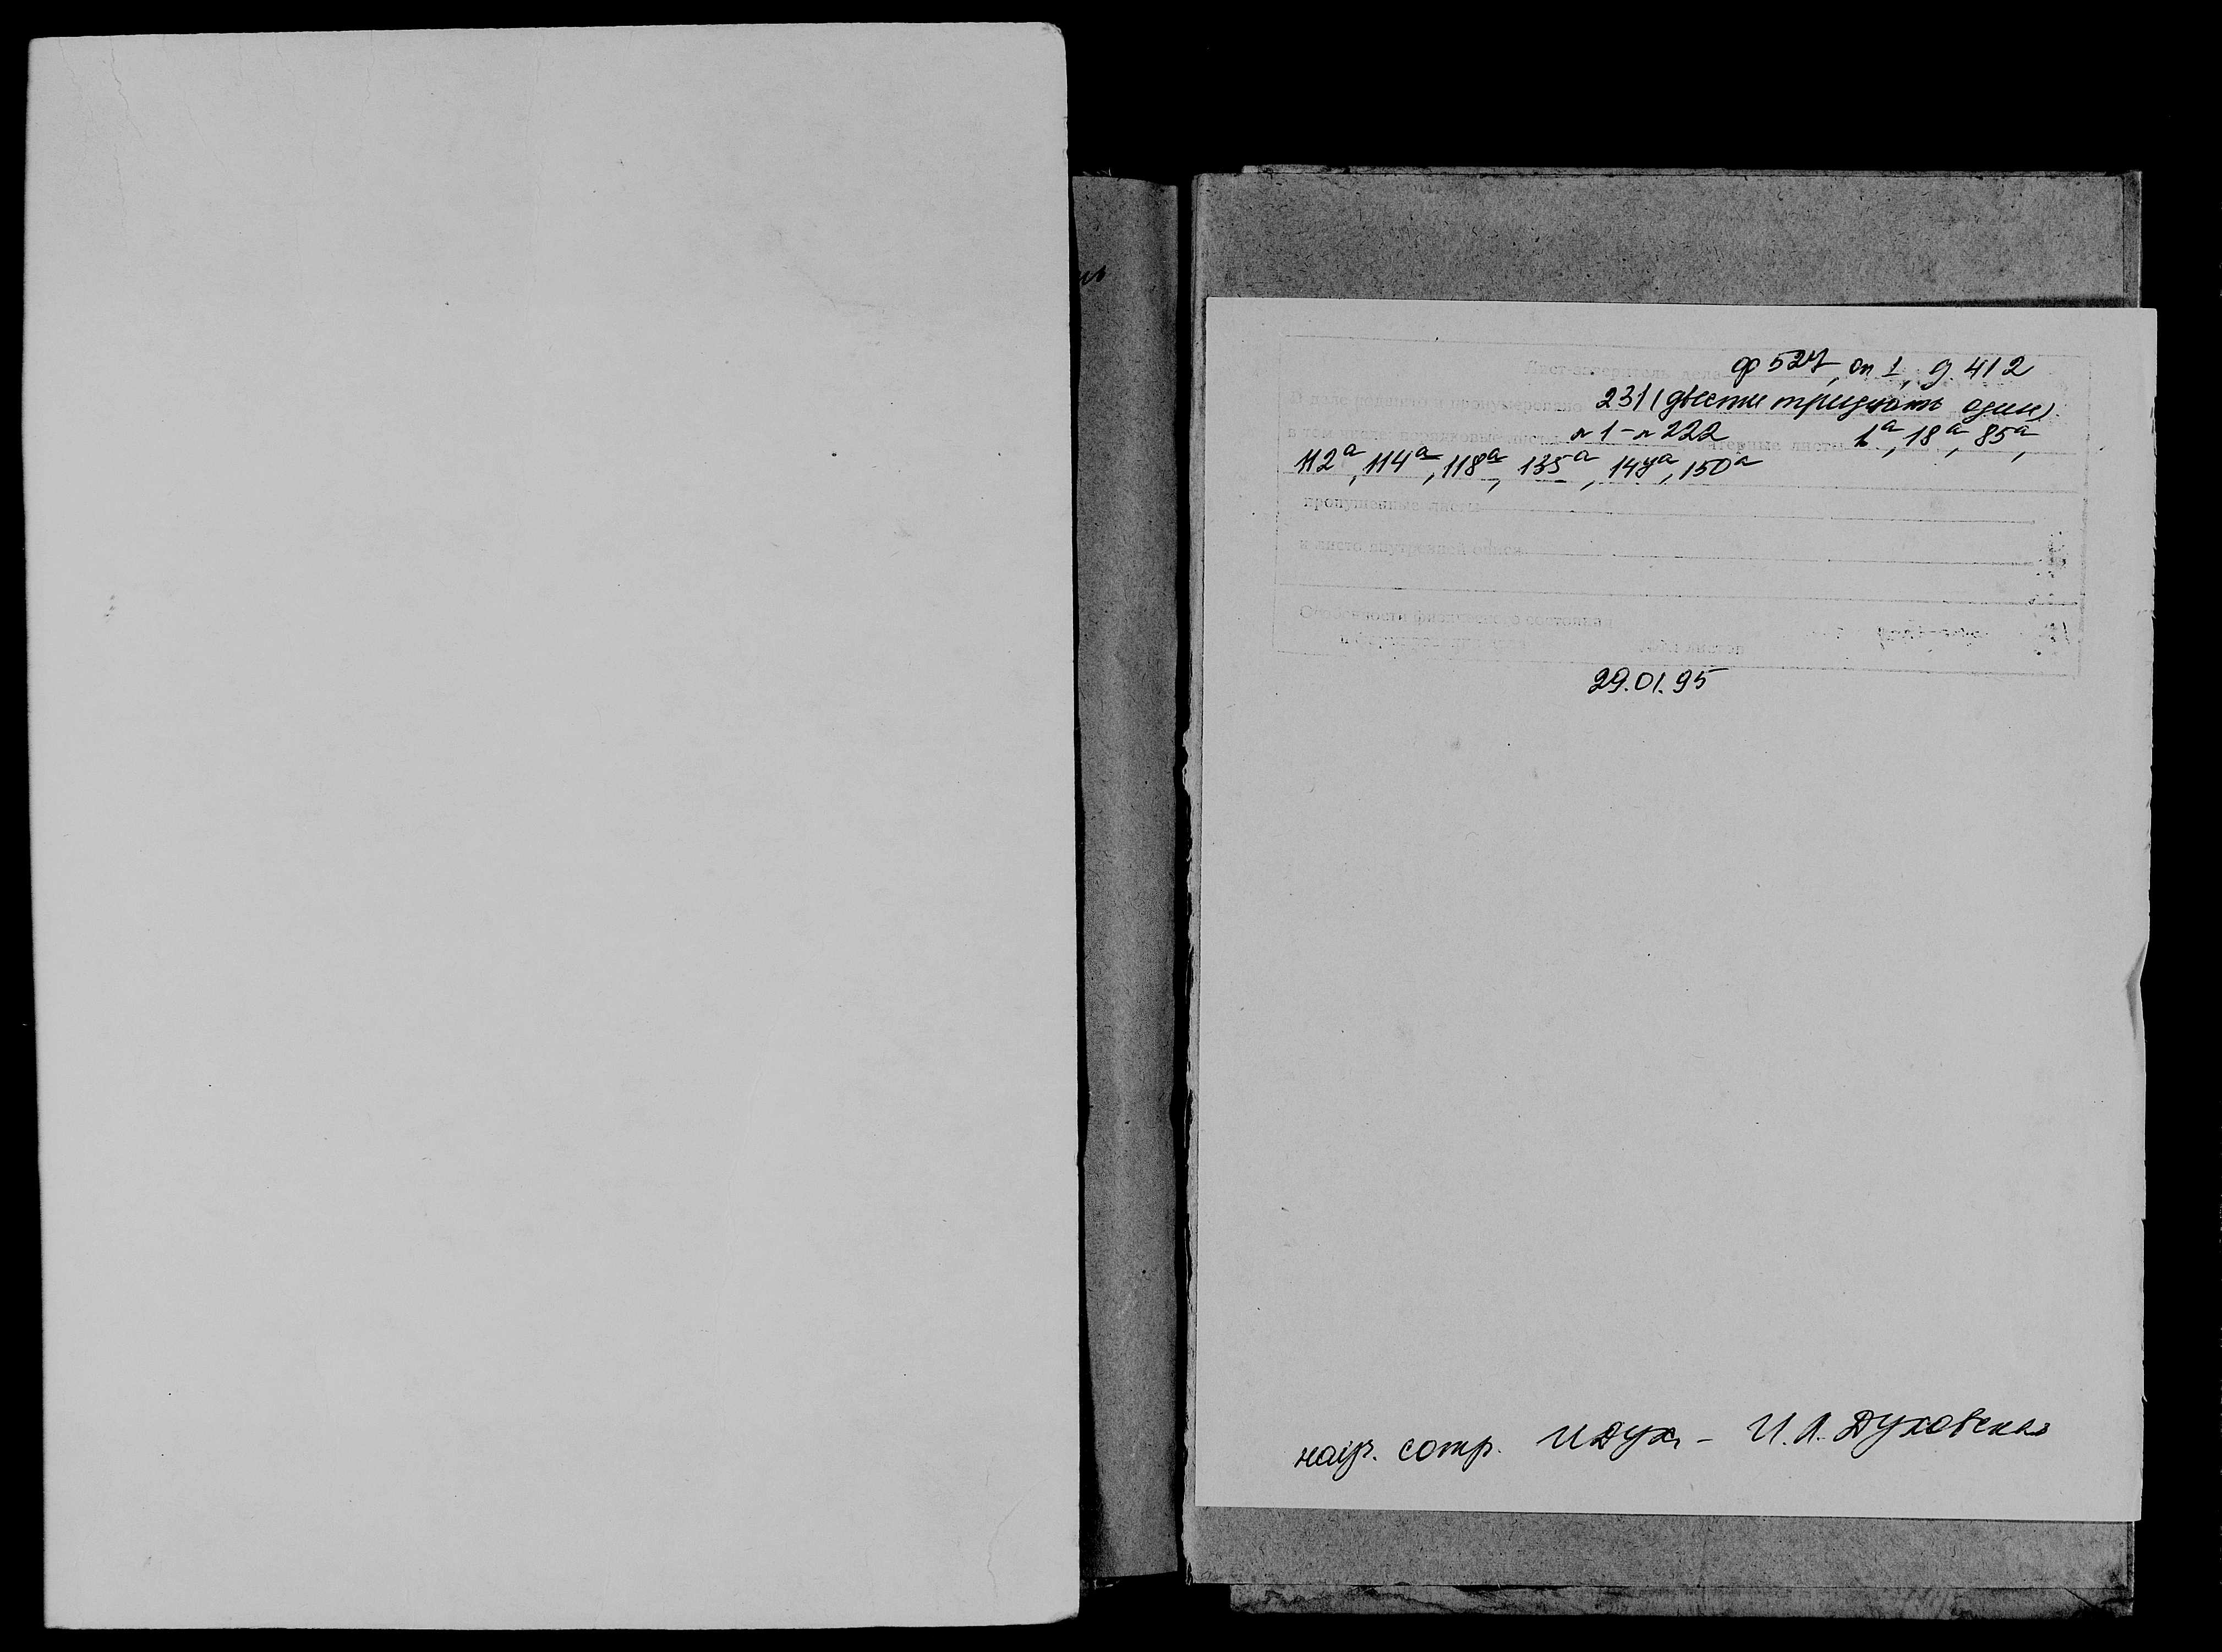 Лист-заверитель дела ф 527, оп 1, д. 412
В деле подшито и пронумеровано 231 (двести тридцать один)
в том числе: порядковые листы л 1 - л 222 литерные листы 1а, 18а, 85а,
112а, 114а, 118а, 135а, 147а, 150а
пропущенные листы
и листов внутренней описи
Особенности физического состояния
листов
29.01.95
сотр. И.Л. Духовская